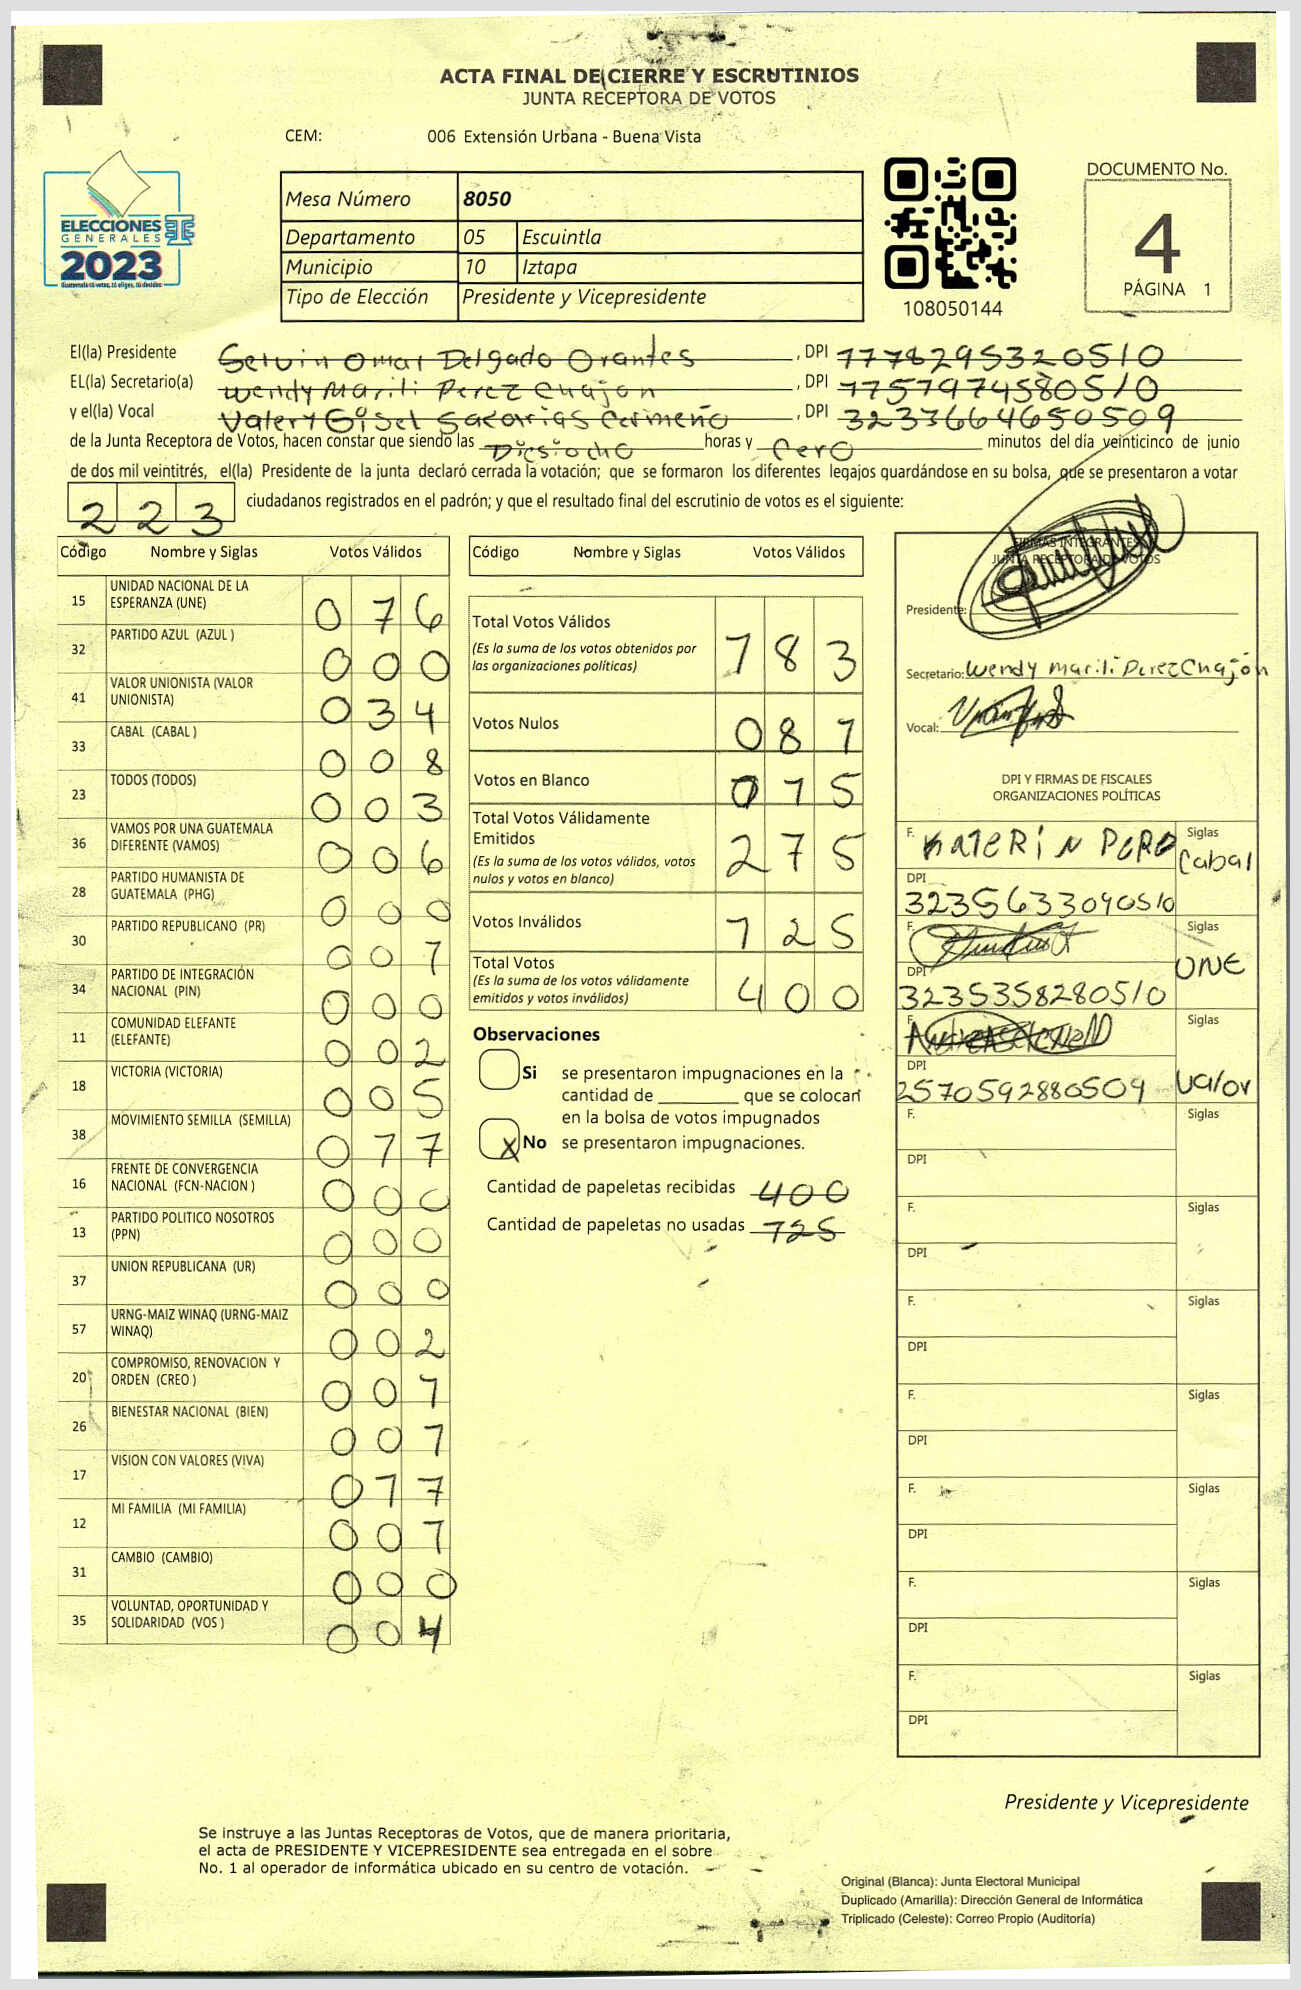 ACTA FINAL DE CIERRE Y ESCRUTINIOS
JUNTA RECEPTORA DE VOTOS
CEM: 006 Extensión Urbana - Buena Vista
ELECCIONES
GENERALES
2023
Guatemala tú votas, tú eliges, tú decides
Mesa Número 8050
Departamento 05 Escuintla
Municipio 10 Iztapa
Tipo de Elección Presidente y Vicepresidente
108050144
DOCUMENTO No.
4
PÁGINA 1
El(la) Presidente Selvin Omar Delgado Orantes, DPI 1778295320510
EL(la) Secretario(a) Wendy Marili Perez Chajon, DPI 1757974580510
y el(la) Vocal Valery Gisel Sacarias Cermeño, DPI 3233664650509
de la Junta Receptora de Votos, hacen constar que siendo las Diesiocho horas y Cero minutos del día veinticinco de junio
de dos mil veintitrés, el(la) Presidente de la junta declaró cerrada la votación; que se formaron los diferentes legajos guardándose en su bolsa, que se presentaron a votar
223 ciudadanos registrados en el padrón; y que el resultado final del escrutinio de votos es el siguiente:
Código Nombre y Siglas Votos Válidos
15 UNIDAD NACIONAL DE LA ESPERANZA (UNE) 076
32 PARTIDO AZUL (AZUL ) 000
41 VALOR UNIONISTA (VALOR UNIONISTA) 034
33 CABAL (CABAL ) 008
23 TODOS (TODOS) 003
36 VAMOS POR UNA GUATEMALA DIFERENTE (VAMOS) 006
28 PARTIDO HUMANISTA DE GUATEMALA (PHG) 000
30 PARTIDO REPUBLICANO (PR) 001
34 PARTIDO DE INTEGRACIÓN NACIONAL (PIN) 000
11 COMUNIDAD ELEFANTE (ELEFANTE) 002
18 VICTORIA (VICTORIA) 005
38 MOVIMIENTO SEMILLA (SEMILLA) 017
16 FRENTE DE CONVERGENCIA NACIONAL (FCN-NACION ) 000
13 PARTIDO POLITICO NOSOTROS (PPN) 000
37 UNION REPUBLICANA (UR) 000
57 URNG-MAIZ WINAQ (URNG-MAIZ WINAQ) 002
20 COMPROMISO, RENOVACION Y ORDEN (CREO ) 001
26 BIENESTAR NACIONAL (BIEN) 001
17 VISION CON VALORES (VIVA) 017
12 MI FAMILIA (MI FAMILIA) 001
31 CAMBIO (CAMBIO) 000
35 VOLUNTAD, OPORTUNIDAD Y SOLIDARIDAD (VOS ) 004
Código Nombre y Siglas Votos Válidos
Total Votos Válidos 183
(Es la suma de los votos obtenidos por
las organizaciones políticas)
Votos Nulos 081
Votos en Blanco 015
Total Votos Válidamente
Emitidos 275
(Es la suma de los votos válidos, votos
nulos y votos en blanco)
Votos Inválidos 125
Total Votos 400
(Es la suma de los votos válidamente
emitidos y votos inválidos)
Observaciones
Si se presentaron impugnaciones en la
cantidad de ________ que se colocan
en la bolsa de votos impugnados
X No se presentaron impugnaciones.
Cantidad de papeletas recibidas 400
Cantidad de papeletas no usadas 125
FIRMAS INTEGRANTES
JUNTA RECEPTORA DE VOTOS
Presidente:
Secretario: Wendy Marili Perez Chajón
Vocal:
DPI Y FIRMAS DE FISCALES
ORGANIZACIONES POLÍTICAS
F. KATERIN PERE Siglas Cabal
DPI 3235633090510
F. Siglas UNE
DPI 3235358280510
F. Siglas Valor
DPI 2570592880509
F. Siglas
DPI
F. Siglas
DPI
F. Siglas
DPI
F. Siglas
DPI
F. Siglas
DPI
F. Siglas
DPI
F. Siglas
DPI
Presidente y Vicepresidente
Se instruye a las Juntas Receptoras de Votos, que de manera prioritaria,
el acta de PRESIDENTE Y VICEPRESIDENTE sea entregada en el sobre
No. 1 al operador de informática ubicado en su centro de votación.
Original (Blanca): Junta Electoral Municipal
Duplicado (Amarilla): Dirección General de Informática
Triplicado (Celeste): Correo Propio (Auditoría)